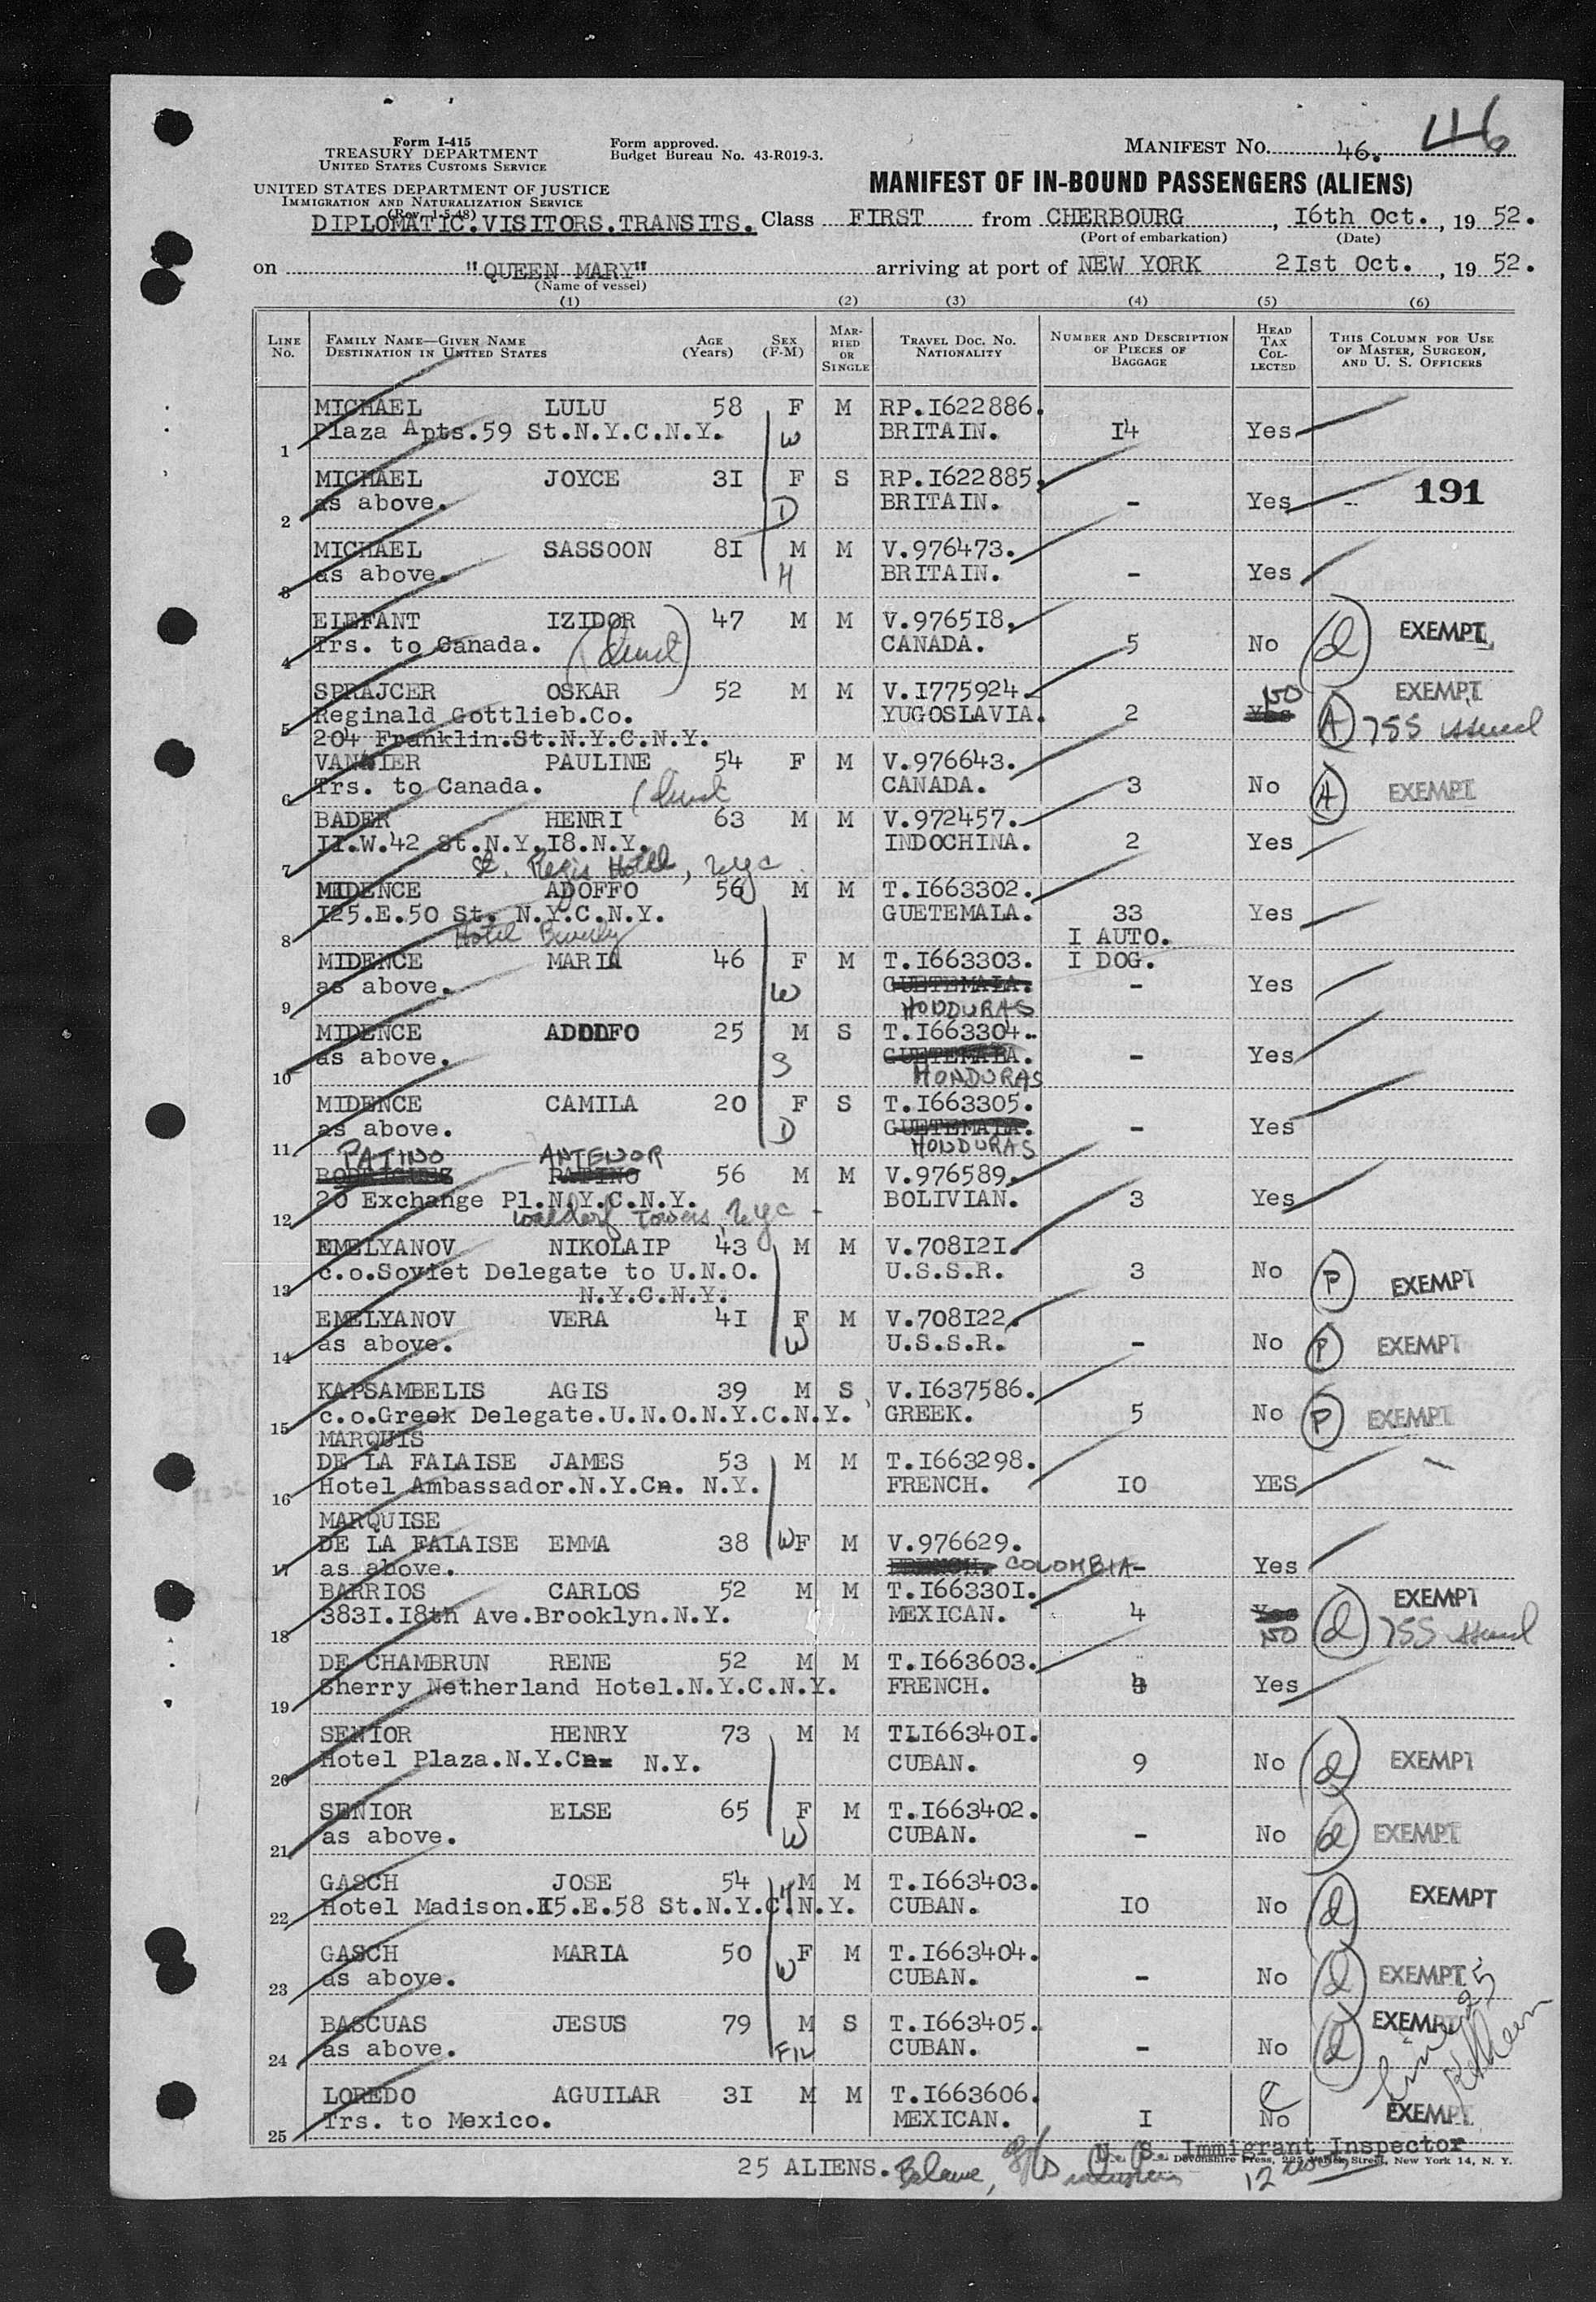 46
Form I-415
TREASURY DEPARTMENT
UNITED STATES CUSTOMS SERVICE
Form approved.
Budget Bureau No. 43-R019-3.
MANIFEST No. 46.
UNITED STATES DEPARTMENT OF JUSTICE
IMMIGRATION AND NATURALIZATION SERVICE
(Rev. 1-5-48)
MANIFEST OF IN-BOUND PASSENGERS (ALIENS)
DIPLOMATIC.VISITORS.TRANSITS. Class FIRST from CHERBOURG, I6th Oct., 19 52.
(Port of embarkation) (Date)
on "QUEEN MARY" arriving at port of NEW YORK 2Ist Oct., 19 52.
(Name of vessel)
(1) (2) (3) (4) (5) (6)
LINE No. FAMILY NAME—GIVEN NAME DESTINATION IN UNITED STATES AGE (Years) SEX (F-M) MARRIED OR SINGLE TRAVEL DOC. NO. NATIONALITY NUMBER AND DESCRIPTION OF PIECES OF BAGGAGE HEAD TAX COLLECTED THIS COLUMN FOR USE OF MASTER, SURGEON, AND U. S. OFFICERS
MICHAEL LULU 58 F M RP.I622886.
1 Plaza Apts.59 St.N.Y.C.N.Y. W BRITAIN. I4 Yes
MICHAEL JOYCE 3I F S RP.I622885.
2 as above. D BRITAIN. - Yes 191
MICHAEL SASSOON 8I M M V.976473.
3 as above. H BRITAIN. - Yes
ELEFANT IZIDOR 47 M M V.9765I8.
4 Trs. to Canada. CANADA. 5 No d EXEMPT
SPRAJCER OSKAR 52 M M V.I775924. NO EXEMPT
5 Reginald Gottlieb.Co. YUGOSLAVIA. 2 Yes A 755 issued
204 Franklin.St.N.Y.C.N.Y.
VANIER PAULINE 54 F M V.976643.
6 Trs. to Canada. CANADA. 3 No A EXEMPT
BADER HENRI 63 M M V.972457.
7 II.W.42 St.N.Y.I8.N.Y. INDOCHINA. 2 Yes
St. Regis Hotel, NYC
MIDENCE ADOFFO 56 M M T.I663302.
8 I25.E.50 St. N.Y.C.N.Y. GUETEMALA. 33 Yes
Hotel Beverly I AUTO.
MIDENCE MARIA 46 F M T.I663303. I DOG.
9 as above. W GUETEMALA. - Yes
HONDURAS
MIDENCE ADOLFO 25 M S T.I663304.
10 as above. S GUETEMALA. - Yes
HONDURAS
MIDENCE CAMILA 20 F S T.I663305.
11 as above. D GUETEMALA. - Yes
HONDURAS
PATINO ANTENOR
RODRIGUEZ PATINO 56 M M V.976589.
12 20 Exchange Pl.N.Y.C.N.Y. BOLIVIAN. 3 Yes
Waldorf Towers, NYC -
EMELYANOV NIKOLAIP 43 M M V.708I2I.
13 c.o.Soviet Delegate to U.N.O. U.S.S.R. 3 No P EXEMPT
N.Y.C.N.Y.
EMELYANOV VERA 4I F M V.708I22.
14 as above. W U.S.S.R. - No P EXEMPT
KAPSAMBELIS AGIS 39 M S V.I637586.
15 c.o.Greek Delegate.U.N.O.N.Y.C.N.Y. GREEK. 5 No P EXEMPT
MARQUIS
DE LA FALAISE JAMES 53 M M T.I663298.
16 Hotel Ambassador.N.Y.Cn. N.Y. FRENCH. IO YES
MARQUISE
DE LA FALAISE EMMA 38 W F M V.976629.
17 as above. FRENCH. COLOMBIA - Yes
BARRIOS CARLOS 52 M M T.I66330I. EXEMPT
18 383I.I8th Ave.Brooklyn.N.Y. MEXICAN. 4 Yes NO d 755 issued
DE CHAMBRUN RENE 52 M M T.I663603.
19 Sherry Netherland Hotel.N.Y.C.N.Y. FRENCH. Yes
SENIOR HENRY 73 M M TLI66340I.
20 Hotel Plaza.N.Y.C N.Y. CUBAN. 9 No d EXEMPT
SENIOR ELSE 65 F M T.I663402.
21 as above. W CUBAN. - No d EXEMPT
GASCH JOSE 54 H M M T.I663403.
22 Hotel Madison.I5.E.58 St.N.Y.C.N.Y. CUBAN. IO No d EXEMPT
GASCH MARIA 50 W F M T.I663404.
23 as above. CUBAN. - No d EXEMPT
BASCUAS JESUS 79 M S T.I663405. EXEMPT
24 as above. FIL CUBAN. - No d
LOREDO AGUILAR 3I M M T.I663606. C
25 Trs. to Mexico. MEXICAN. I No EXEMPT
U. S. Immigrant Inspector
25 ALIENS. 12
Devonshire Press, 225 Varick Street, New York 14, N. Y.